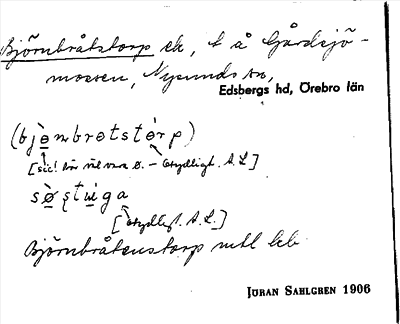 Björnbråtstorp ek, t å Gårdsjö-
mossen, Nysunds sn,
Edsbergs hd, Örebro län
(bjɵ̀nbrotstɵrp)
[sic! bör väl vara ø. – otydligt. A.L]
sø̀ʂtɯ́ga
[otydligt. A.L.]
Björnbråtenstorp mtl
JÖRAN SAHLGREN 1906